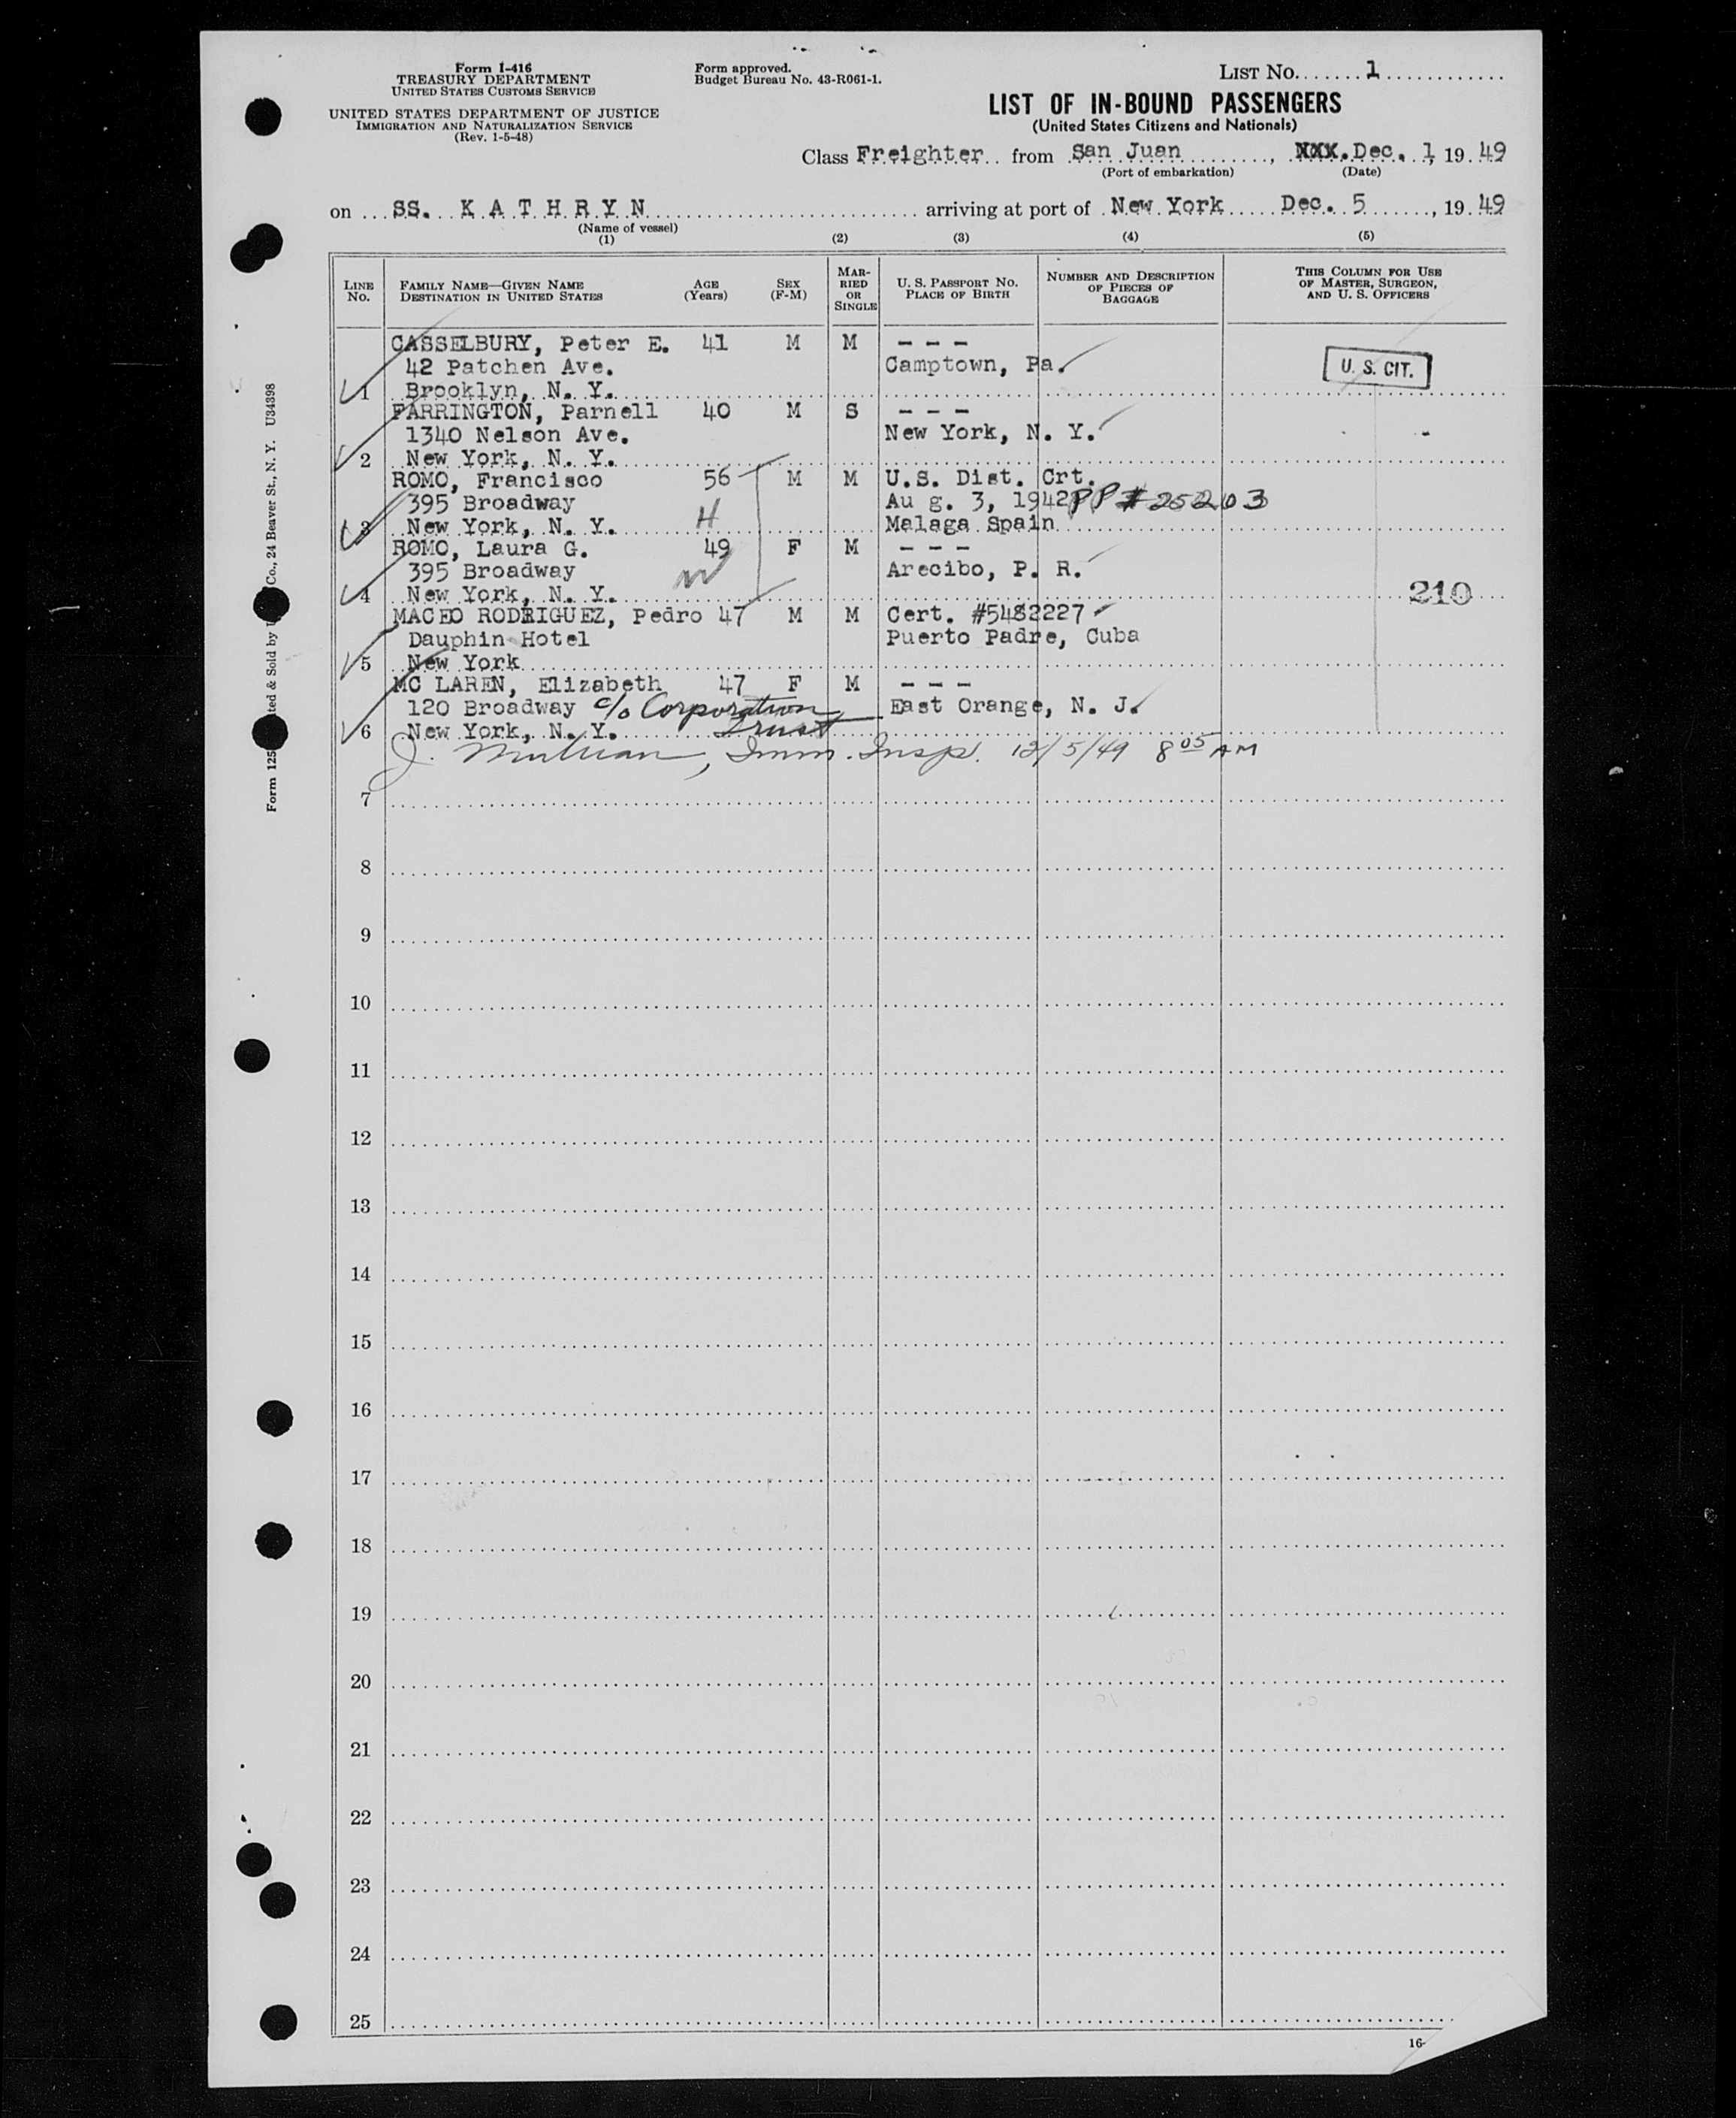 Form I-416
TREASURY DEPARTMENT
UNITED STATES CUSTOMS SERVICE
UNITED STATES DEPARTMENT OF JUSTICE
IMMIGRATION AND NATURALIZATION SERVICE
(Rev. 1-5-48)
Form approved.
Budget Bureau No. 43-R061-1.
LIST No. 1
LIST OF IN-BOUND PASSENGERS
(United States Citizens and Nationals)
Class Freighter from San Juan, XXX. Dec. 1, 19 49
(Port of embarkation) (Date)
on SS. K A T H R Y N arriving at port of New York Dec. 5, 19 49
(Name of vessel)
(1) (2) (3) (4) (5)
LINE No.
FAMILY NAME—GIVEN NAME
DESTINATION IN UNITED STATES
AGE (Years)
SEX (F-M)
MARRIED OR SINGLE
U. S. PASSPORT No.
PLACE OF BIRTH
NUMBER AND DESCRIPTION OF PIECES OF BAGGAGE
THIS COLUMN FOR USE OF MASTER, SURGEON, AND U. S. OFFICERS
CASSELBURY, Peter E. 41 M M - - -
42 Patchen Ave. Camptown, Pa. U. S. CIT.
1 Brooklyn, N. Y.
FARRINGTON, Parnell 40 M S - - -
1340 Nelson Ave. New York, N. Y.
2 New York, N. Y.
ROMO, Francisco 56 M M U.S. Dist. Crt.
395 Broadway Au g. 3, 1942 PP # 25203
3 New York, N. Y. H Malaga Spain
ROMO, Laura G. 49 F M - - -
395 Broadway W Arecibo, P. R.
4 New York, N. Y. 210
MACEO RODRIGUEZ, Pedro 47 M M Cert. #5482227
Dauphin Hotel Puerto Padre, Cuba
5 New York
MC LAREN, Elizabeth 47 F M - - -
120 Broadway c/o Corporation East Orange, N. J.
6 New York, N. Y. Trust
J. , Imm. Insp. 12/5/49 8 05 AM
7
8
9
10
11
12
13
14
15
16
17
18
19
20
21
22
23
24
25
16-
Form 125 ted & Sold by Co., 24 Beaver St., N. Y. U34398